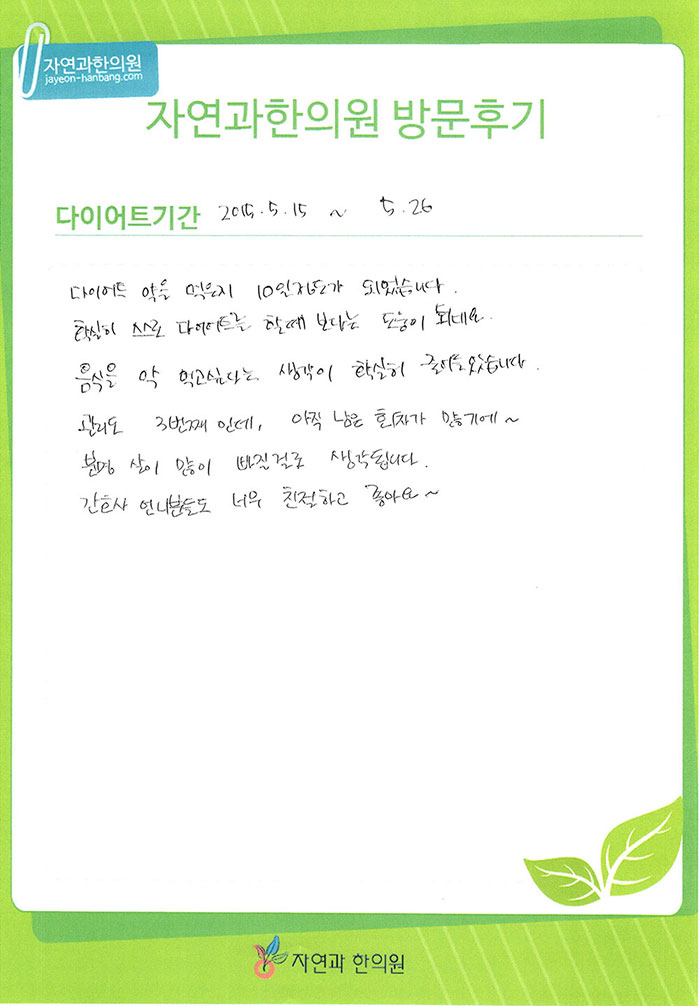 자연과한의원
jayeon-hanbang.com
자연과한의원 방문후기
다이어트기간 2015.5.15 ~ 5.26
다이어트 약을 먹은지 10일정도가 되었습니다.
확실히 스스로 다이어트를 할때 보다는 도움이 되네요.
음식을 막 먹고싶다는 생각이 확실히 줄어들었습니다.
관리도 3번째 인데, 아직 남은 회차가 많기에~
분명 살이 많이 빠질걸로 생각됩니다.
간호사 언니분들도 너무 친절하고 좋아요~
자연과 한의원